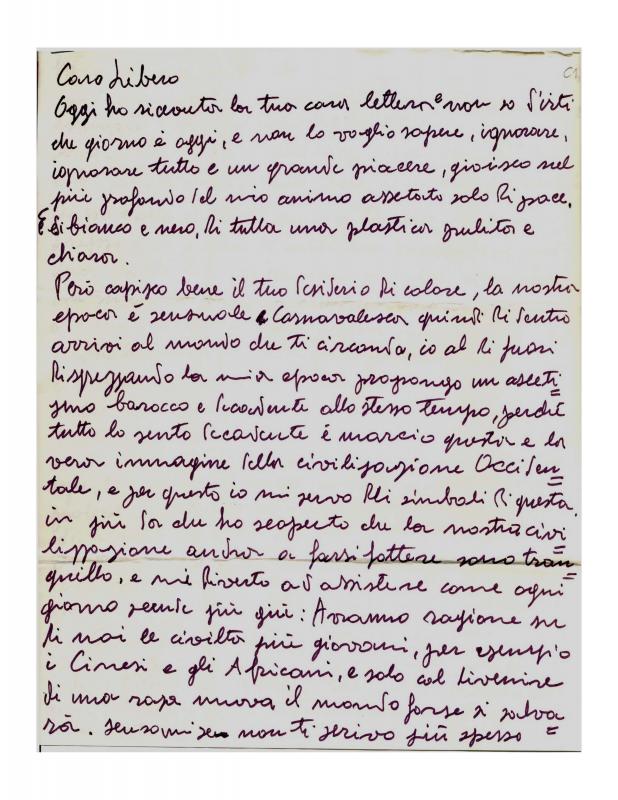 Caro Libero
Oggi ho ricevuto la tua cara lettera e non so dirti
che giorno è oggi, e non lo voglio sapere, ignorare,
ignorare tutto e un grande piacere, gioisco nel
più profondo del mio animo assetato solo di pace,
E di bianco e nero, di tutta una plastica pulita e
chiara.
Però capisco bene il tuo desiderio di colore, la nostra
epoca è sensuale e Carnavalesca quindi di dentro
arrivi al mondo che ti circonda, io al di fuori
disprezzando la mia epoca propongo un asceti=
smo barocco e decadente allo stesso tempo, perché
tutto lo sento decadente è marcio questa e la
vera immagine della civilizzazione Occiden=
tale, e per questo io mi servo dei simboli di questa,
in più da che ho scoperto che la nostra civi=
lizzazione andrà a farsi fottere sono tran=
quillo, e mi diverto ad assistere come ogni
giorno scende più giù: Avranno ragione su
di noi le civiltà più giovani, per esempio
i Cinesi e gli Africani, e solo col divenire
di una raza nuova il mondo forse si salva=
rà. Scusami se non ti scrivo più spesso